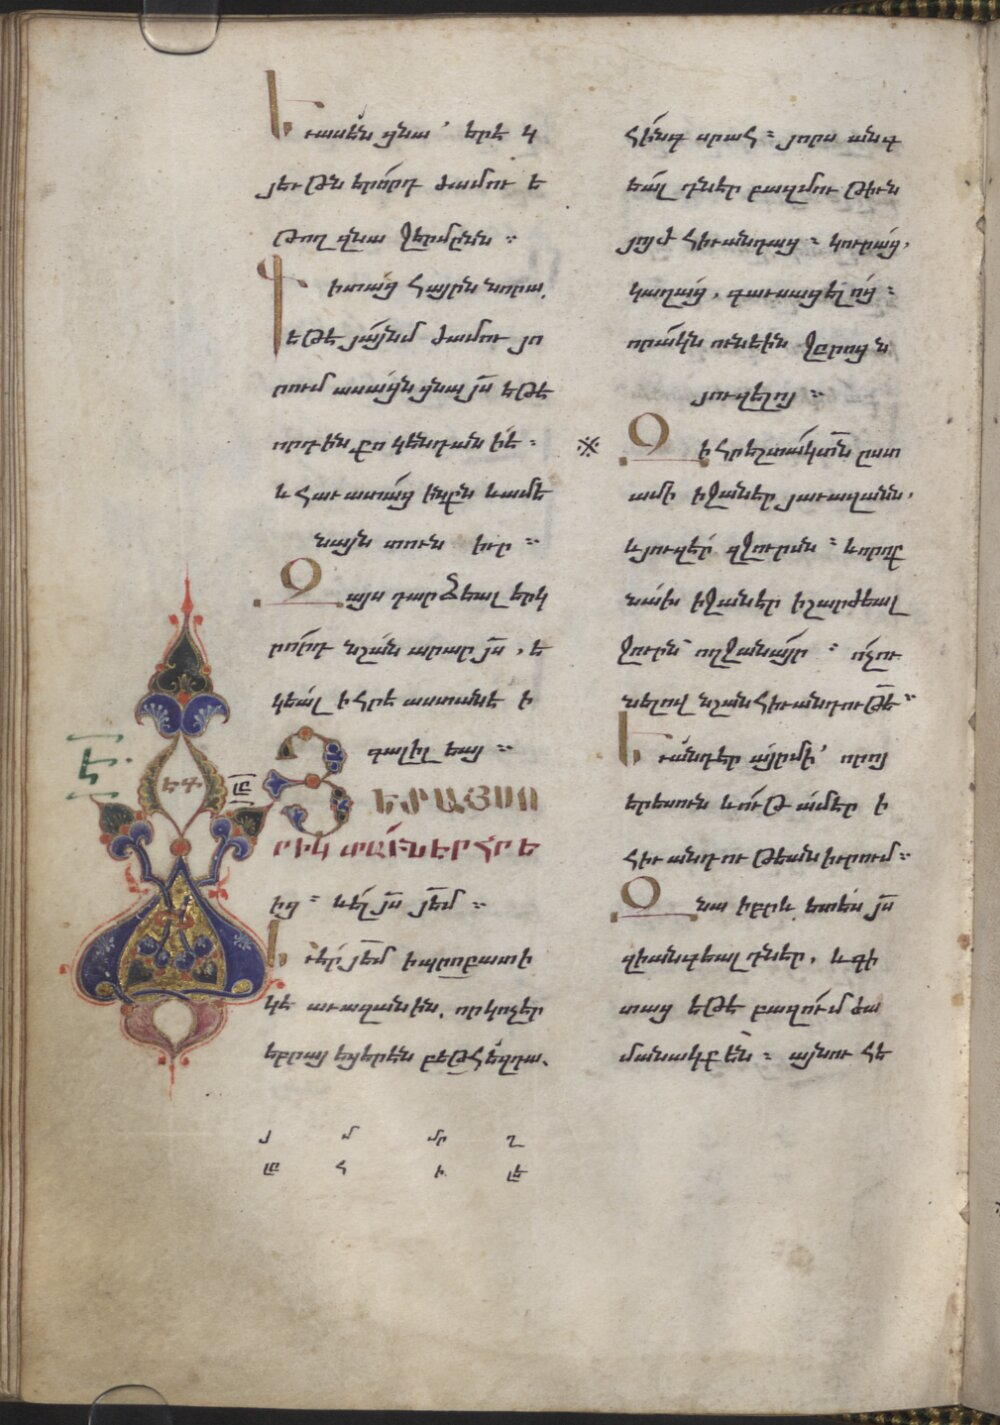 Եւ ասեն ցնա՝ երէկ
յեւթներորդ ժամու ե
թող զնա ջերմնն ։
Գիտաց հայրն նորա,
եթե յայնմ ժամու յո
րում ասացն ցնա յս եթե
որդին քո կենդանի է ։
և հաւատաց ինքն և ամե
նայն տուն իւր ։
Զայս դարձեալ երկ
րորդ նշան արար յս, ե
կեալ ի հրեաստանէ ի
գալիլեայ ։
ՅԵՏ ԱՅՍՈ
ՐԻԿ ՏԱՒՆ ԷՐ ՀՐԵ
ից ։ և ել յս յեմ ։
Եւ էր յեմ ի պրոբատի
կէ աւազանին, որ կոչէր
եբրայեցերէն բեթհեզդա.
հինգ սրահ ։ յորս անգ
եալ դնէր բազմութիւն
յոյժ հիւանդաց ։ կուրաց,
կաղաց, գաւսացելոց ։
որակն ունէին ջրոցն
յուզելոյ ։
Զի հրեշտակ տն ըստ
ամի իջանէր յաւազանն,
և յուզէր զջուրսն ։ և որոք
նախ իջանէր ի շարժեալ
ջուրն՝ ողջանայր ։ ոչ ու
նելով նշան հիւանդութե ։
Եւ անդ էր այր մի՝ որոյ
երեսուն և ութ ամ էր ի
հիւանդութեան իւրում ։
Զնա իբրև ետես յս
զի անգեալ դնէր, և գի
տաց եթե բազում ժա
մանակք են ։ այնու հե